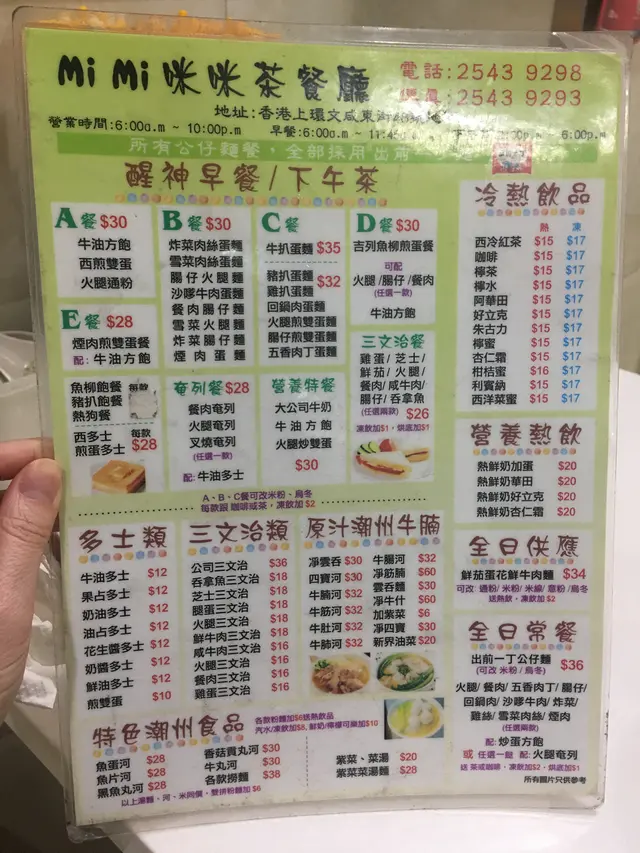 Mi Mi 咪咪茶餐廳
電話:2543 9298
2543 9293
地址:香港上環文咸東街
營業時間:6:00a.m ~ 10:00p.m 早餐:6:00a.m ~ 11:45 ~ 6:00p.m
所有公仔麵餐，全部採用出前一丁
醒神早餐/下午茶
A餐 $30
牛油方飽
西煎雙蛋
火腿通粉
E餐 $28
煙肉煎雙蛋餐
配: 牛油方飽
B餐 $30
炸菜肉絲蛋麵
雪菜肉絲蛋麵
腸仔火腿麵
沙嗲牛肉蛋麵
餐肉腸仔麵
雪菜火腿麵
炸菜腸仔麵
煙肉蛋麵
C餐
牛扒蛋麵 $35
豬扒蛋麵 $32
雞扒蛋麵
回鍋肉蛋麵
火腿煎雙蛋麵
腸仔煎雙蛋麵
五香肉丁蛋麵
D餐 $30
吉列魚柳煎蛋餐
可配
火腿/腸仔/餐肉
(任選一款)
牛油方飽
三文治餐
雞蛋/芝士/
鮮茄/火腿/
餐肉/咸牛肉/
腸仔/吞拿魚
(任選兩款) $26
凍飲加$1，烘底加$1
魚柳飽餐 每款
豬扒飽餐
熱狗餐
西多士 每款
煎蛋多士 $28
奄列餐 $28
餐肉奄列
火腿奄列
叉燒奄列
(任選一款)
配: 牛油多士
營養特餐
大公司牛奶
牛油方飽
火腿炒雙蛋
$30
A、B、C餐可改米粉、烏冬
每款跟 咖啡或茶，凍飲加$2
冷熱飲品
熱 凍
西冷紅茶 $15 $17
咖啡 $15 $17
檸茶 $15 $17
檸水 $15 $17
阿華田 $15 $17
好立克 $15 $17
朱古力 $15 $17
檸蜜 $15 $17
杏仁霜 $15 $17
柑桔蜜 $16 $17
利賓納 $15 $17
西洋菜蜜 $15 $17
營養熱飲
熱鮮奶加蛋 $20
熱鮮奶華田 $20
熱鮮奶好立克 $20
熱鮮奶杏仁霜 $20
全日供應
鮮茄蛋花鮮牛肉麵 $34
可改 通粉/米粉/米線/意粉/烏冬
送熱飲，凍飲加$2
全日常餐
出前一丁公仔麵 $36
(可改 米粉/烏冬)
火腿/餐肉/五香肉丁/腸仔/
回鍋肉/沙嗲牛肉/炸菜/
雞絲/雪菜肉絲/煙肉
(任選兩款)
配: 炒蛋方飽
或 任選一飽 配: 火腿奄列
送 茶或咖啡、凍飲加$2、烘底加$1
所有圖片只供參考
多士類
牛油多士 $12
果占多士 $12
奶油多士 $12
油占多士 $12
花生醬多士 $12
奶醬多士 $12
鮮油多士 $12
煎雙蛋 $10
三文治類
公司三文治 $36
吞拿魚三文治 $18
芝士三文治 $18
腿蛋三文治 $18
火腿三文治 $18
鮮牛肉三文治 $16
咸牛肉三文治 $16
火腿三文治 $16
餐肉三文治 $16
雞蛋三文治 $16
原汁潮州牛腩
淨雲呑 $30
四寶河 $30
牛腩河 $32
牛筋河 $32
牛肚河 $32
牛肺河 $32
牛腸河 $32
淨筋腩 $60
雲呑麵 $30
淨牛什 $60
加紫菜 $6
淨四寶 $30
新界油菜 $20
特色潮州食品
各款粉麵加$6送熱飲品
汽水/凍飲加$8, 鮮奶/檸檬可樂加$10
魚蛋河 $28
魚片河 $28
黑魚丸河 $28
香菇貢丸河 $30
牛丸河 $30
各款撈麵 $38
紫菜、菜湯 $20
紫菜菜湯麵 $28
以上湯麵、河、米同價，雙拼粉麵加 $6